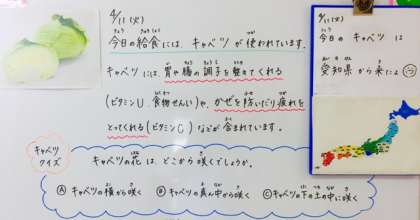 4/11(火)
今日の給食には、キャベツが使われています。
キャベツには胃や腸の調子を整えてくれる
(ビタミンU、食物せんい)や、かぜを防いだり疲れを
とってくれる(ビタミンC)などが含まれています。
キャベツ
クイズ
キャベツの花は、どこから咲くでしょうか。
Ⓐ キャベツの横から咲く Ⓑ キャベツの真ん中から咲く Ⓒ キャベツの下の土の中に咲く
4/11(火)
今日のキャベツは
愛知県から来たよ